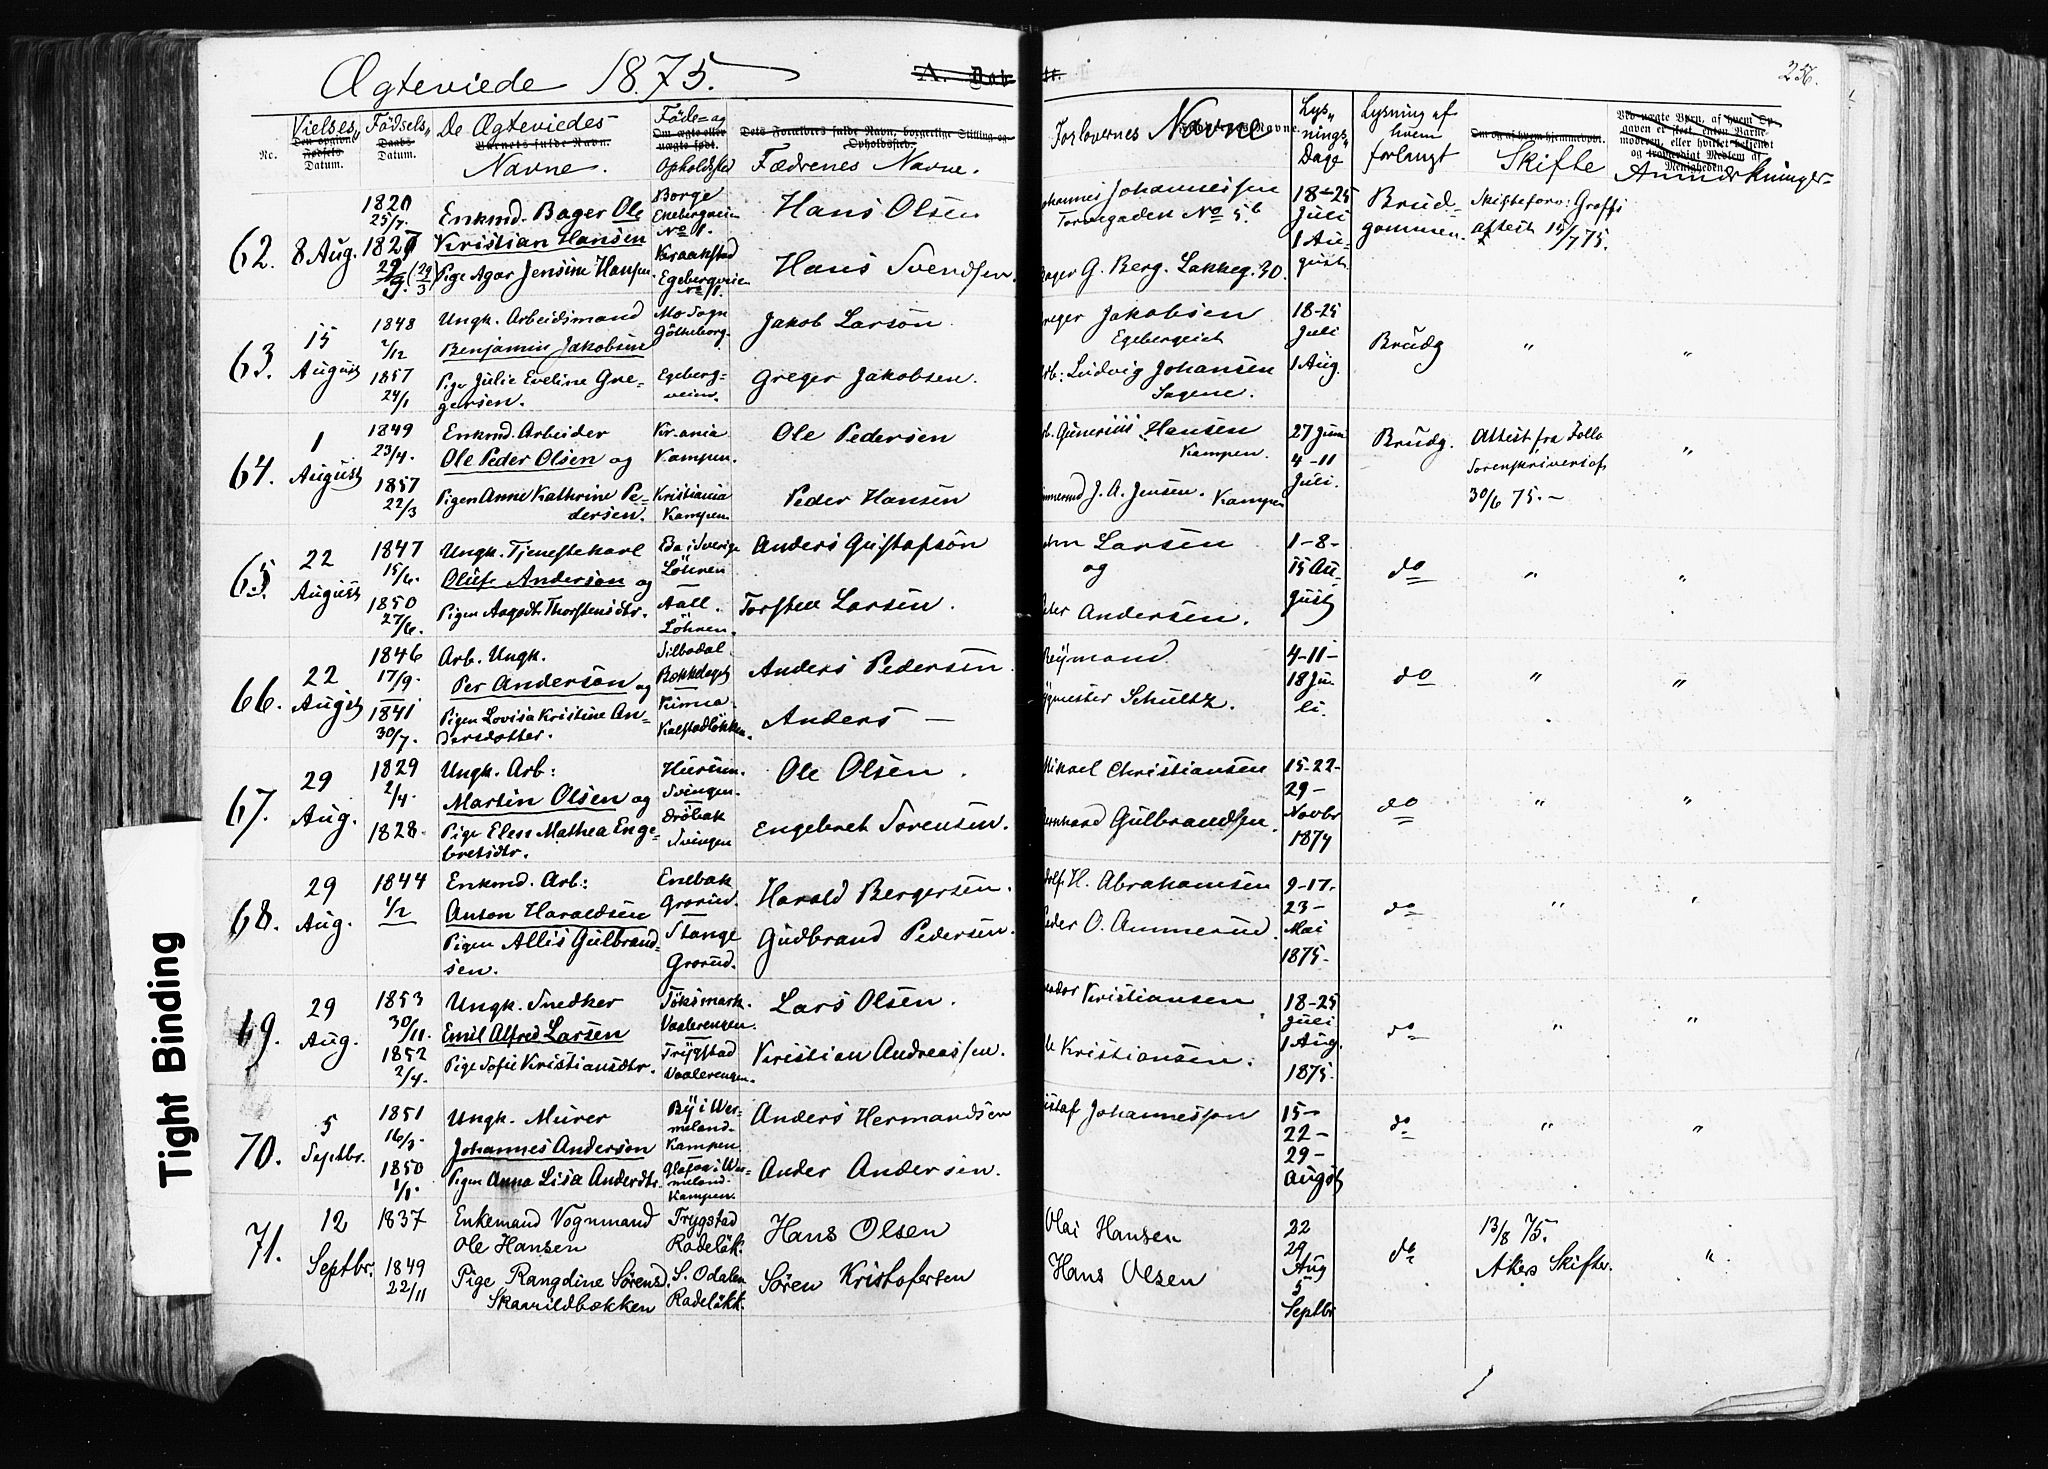 Ægteviede 1875.
A. Døb
256.
No.
Vielses„
Datum.
Fødsels„
Datum.
De Ægteviedes
Navne.
Føde= og
Opholdssted
Fædrenes Navne.
Forlovernes Navne
Lys„
nings„
Dage
Lysning af
hvem
forlangt
Skifte
Anmærkninger
62.
8 Aug.
1820
25/7.
1827
29/3
Enkmd. Bager Ole
Kristian Hansen
Pige Agar Jensine Hansen
Borge
Ekebergveien
No 1.
Kraakstad
Egebergveien
No 1.
Hans Olsen
Hans Svendsen.
Johannessen
Torvegaden No 5b
G. Berg. Lakkeg. 30.
18-25
Juli
1 Au-
gust.
Brud-
gommen.
attest 15/7 75.
63.
15
August
1848
2/12
1857
24/1
Ungk. Arbeidsmand
Benjamin Jakobsen
Pige Julie Eveline Gre-
gersen.
Mo Sogn
Götheborg.
Egeberg-
veien.
Jakob Larson
Greger Jakobsen.
reger Jakobsen
rb: Ludvig Johansen
Sagene.
18-25
Juli
1 Aug.
Brudg
„
„
64.
1
August
1849
23/4.
1857
22/3
Enkmd. Arbeider
Ole Peder Olsen og
Pigen Anne Kathrine Pe-
dersen.
Kr.ania
Kampen.
Kristiania
Kampen
Ole Pedersen
Peder Hansen
rb. Gunerius Hansen
Kampen.
J. A. Jensen. Kampen
27 Juni
4-11
Juli.
Brudg.
Attest fra Follo
Sorenskriveri af
30/6 75.-
„
65.
22
August
1847
15/6.
1850
27/6.
Ungk. Tjenestekarl
Oluf Anderson og
Pigen Aagodt Thorstensdtr.
Eda i Sverige
Löhren
Aall.
Löhren.
Anders Gustafsön
Torsten Larsen.
Larsen
og
eder Andersen.
1-8-
15 Au-
gust
do
„
„
66.
22
August
1846
17/9.
1841
30/7.
Arb. Ungk.
Per Anderson og
Pigen Lovisa Kristine An-
dersdotter.
Silbodal
Kinna
Kalstadlökken.
Anders Pedersen
Anders —
Reymond
Schultz.
4-11-
18 Ju-
li.
do
„
„
67.
29
Aug.
1829
2/4.
1828.
Ungk. Arb:
Martin Olsen og
Pige Elen Mathea Enge-
bretsdtr.
Hurum.
Svingen.
Dröbak
Svingen
Ole Olsen.
Engebret Sorensen.
Mikael Christiansen
ernhard Gulbrandsen.
15-22-
29-
Novbr
1874
do
„
„
68.
29
Aug.
1844
1/2
Enkmd. Arb:
Anton Haraldsen
Pigen Allis Gulbrand-
sen.
Enebak
Grorud.
Stange
Grorud.
Harald Bergersen.
Gudbrand Pedersen.
dolf H. Abrahamsen
eder O. Ammerud.
9-17-
23-
Mai
1875-
do
„
„
69.
29
Aug.
1853
30/11.
1852
2/4.
Ungk. Snedker
Emil Alfred Larsen
Pige Sofie Kristiansdtr.
Töksmark.
Vaalerengen.
Trygstad
Vaalerengen.
Lars Olsen.
Kristian Andreassen.
Kristiansen
le Kristiansen.
18-25
Juli
1 Aug.
1875.
do
„
„
70.
5
Septbr.
1851
16/3.
1850
1/1.
Ungk. Murer
Johannes Anderson
Pigen Anna Lisa Andersdtr.
By i Wer-
meland-
Kampen
Glafva i Wer-
meland.
Kampen.
Anders Hermandsen
Ander Andersen.
ustaf Johannesson
15-
22-
29-
August
do
„
„
71.
12
Septbr.
1837
1849
22/11
Enkemand Vognmand
Ole Hansen
Pige Rangdine Sørensd.
Skaarildbækken
Trygstad
Rodeløk.
S. Odalen
Rodeløkk.
Hans Olsen
Søren Kristofersen
Olai Hansen
Hans Olsen
22
29
Aug
5
Septbr
do
13/8 75.
Akers Skifter.
„
Tight Binding